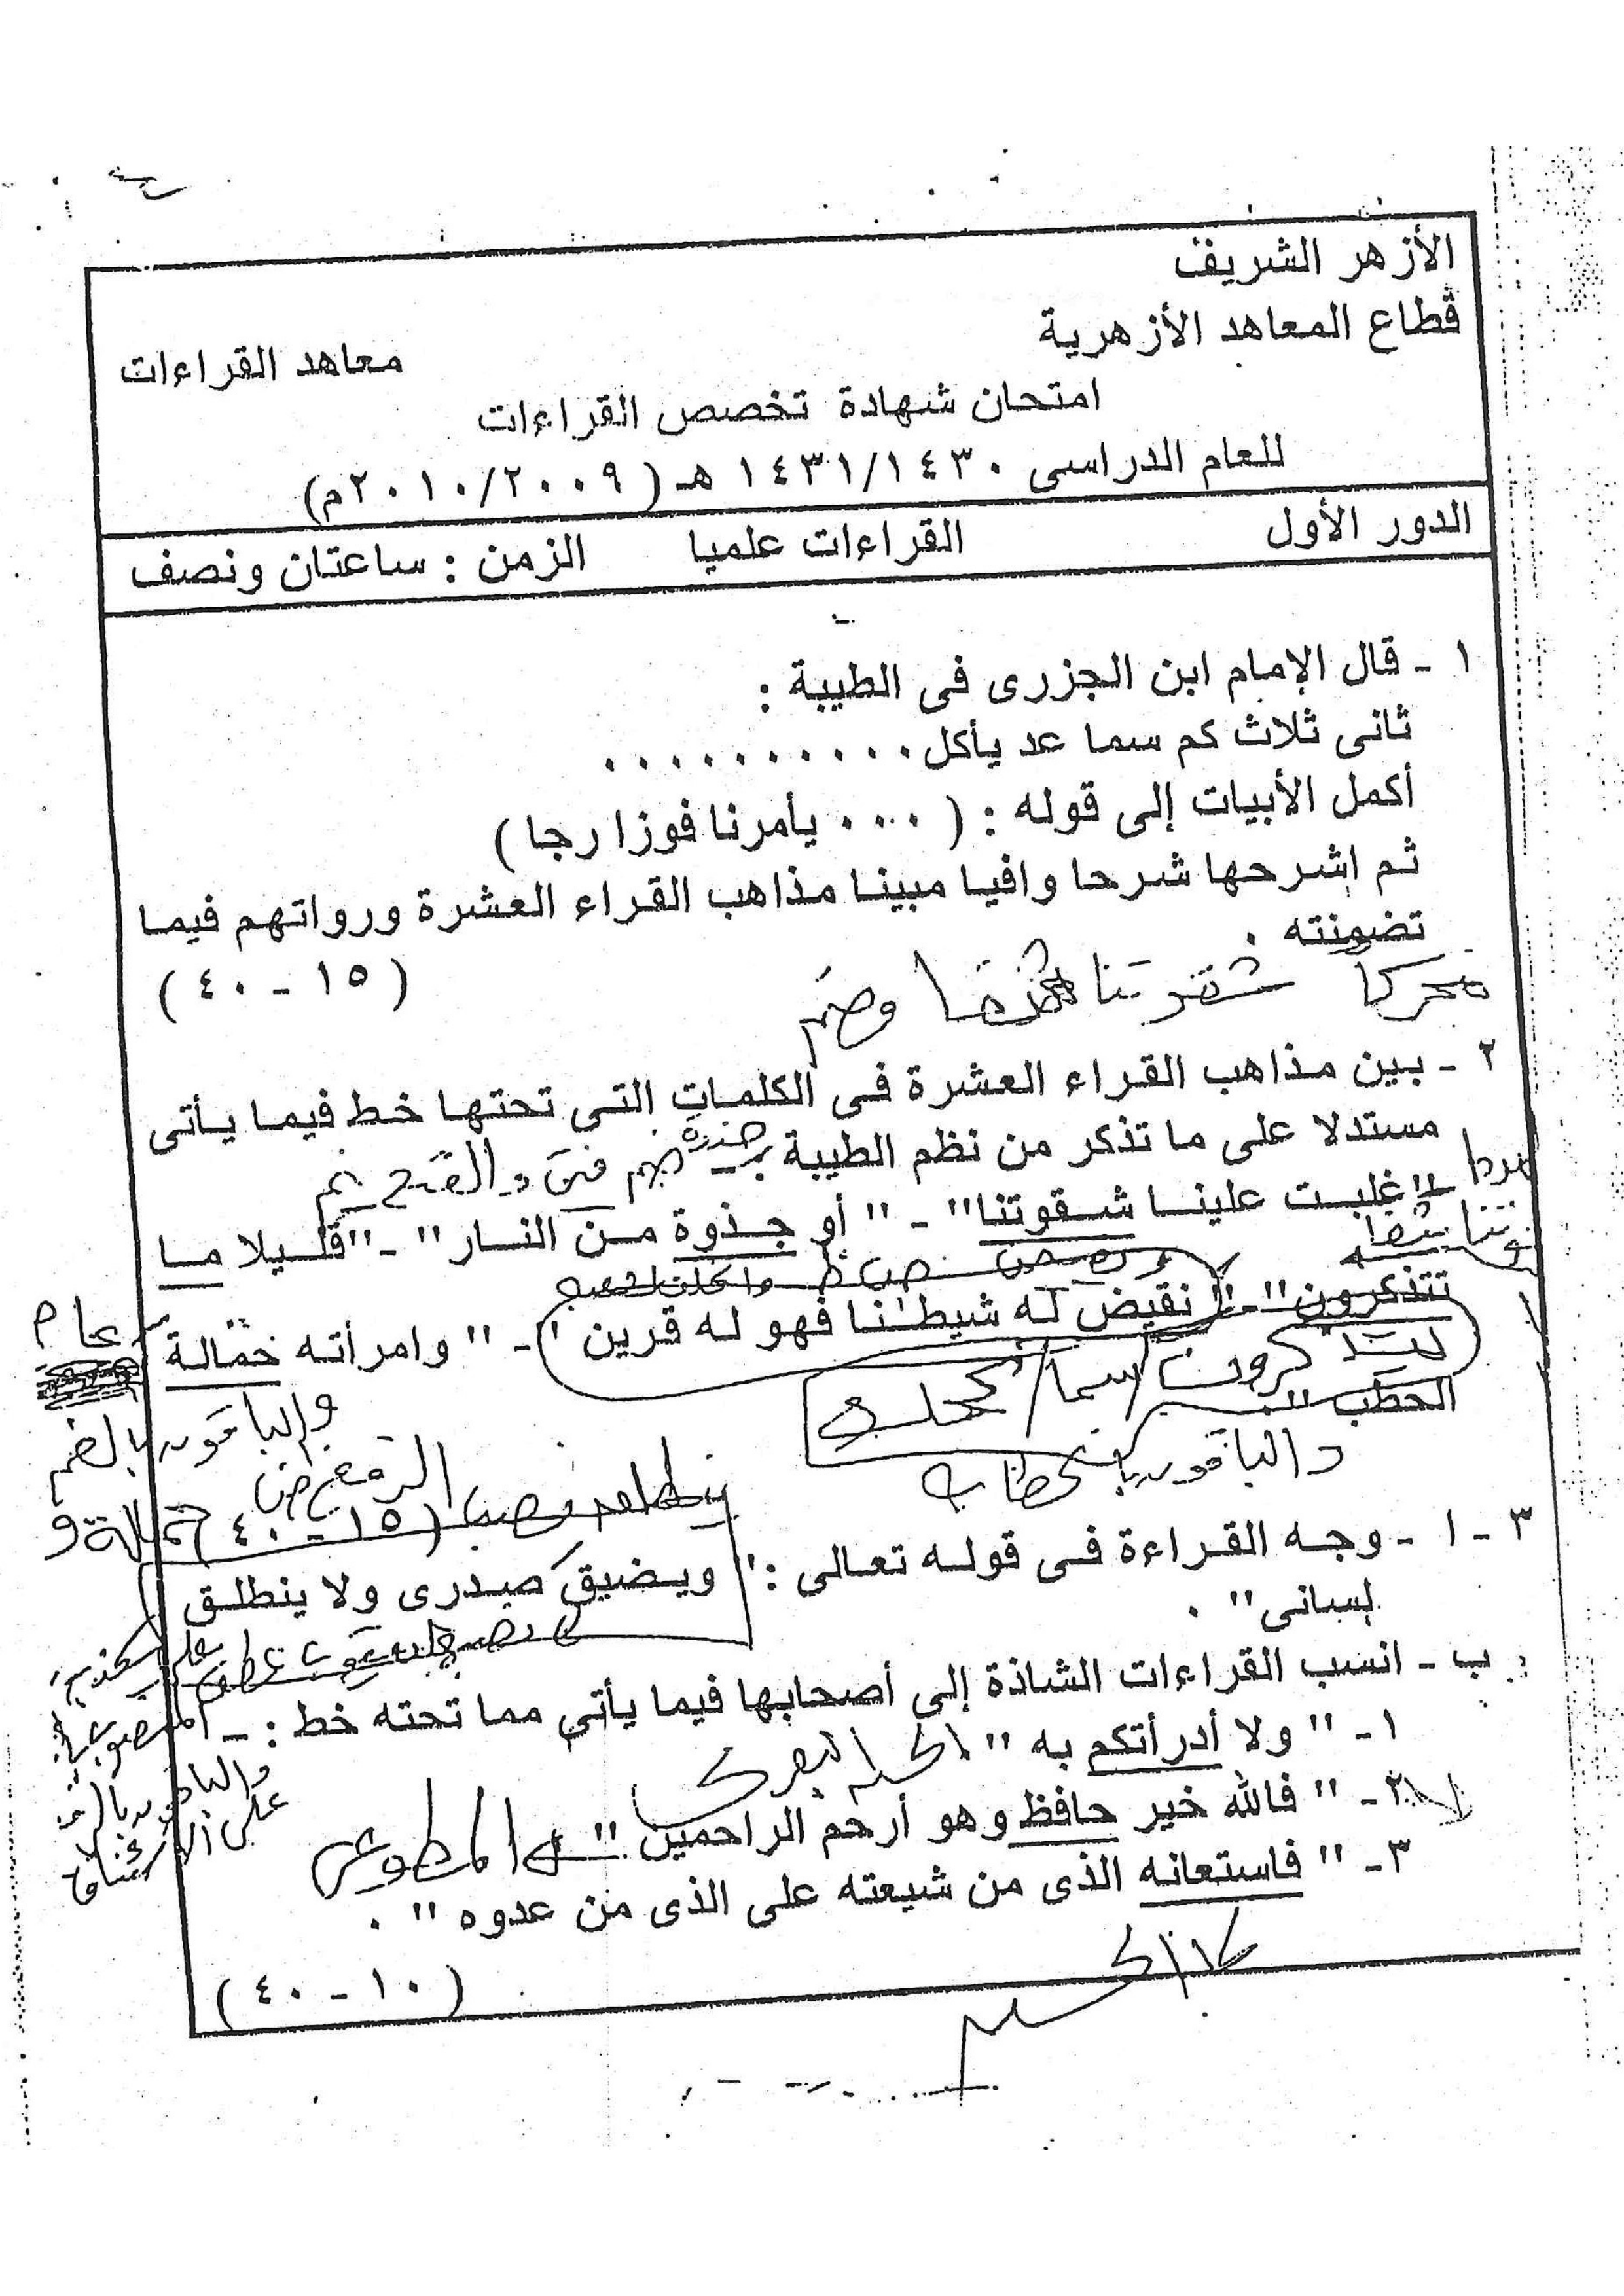 الأزهر الشريف
قطاع المعاهد الأزهرية
معاهد القراءات
امتحان شهادة تخصص القراءات
للعام الدراسى ١٤٣١/١٤٣٠ هـ (٢٠١٠/٢٠٠٩م)
الدور الأول القراءات علميا الزمن : ساعتان ونصف
١ - قال الإمام ابن الجزرى فى الطيبة :
ثانى ثلاث كم سما عد يأكل . . . . . . . . . .
أكمل الأبيات إلى قوله : ( . . . . يأمرنا فوزا رجا )
ثم اشرحها شرحا وافيا مبينا مذاهب القراء العشرة ورواتهم فيما
تضمنته .
( ١٥ - ٤٠ )
محركا شقوتنا وضم
٢ - بين مذاهب القراء العشرة فى الكلمات التى تحتها خط فيما يأتى
مستدلا على ما تذكر من نظم الطيبة
جذوة ضم فتى والفتح نم
"غلبت علينا شقوتنا" - " أو جذوة من النار" - "قليلا ما
تتذكرون" - " نقيض له شيطنا فهو له قرين " - " وامرأته حمالة
الحطب "
عاصم
والباقون بالضم
والباقون بالخطاب
( ١٥ - ٤٠ )
٣ - ١ - وجه القراءة فى قوله تعالى : " ويضيق صدرى ولا ينطلق
لسانى" .
ب - انسب القراءات الشاذة إلى أصحابها فيما يأتى مما تحته خط : -
١ - " ولا أدرأتكم به " الحسن البصرى
٢ - " فالله خير حافظ وهو أرحم الراحمين " المطوعى
٣ - " فاستعانه الذى من شيعته على الذى من عدوه " .
والباقون بالرفع
على الاستئناف
( ١٠ - ٤٠ )